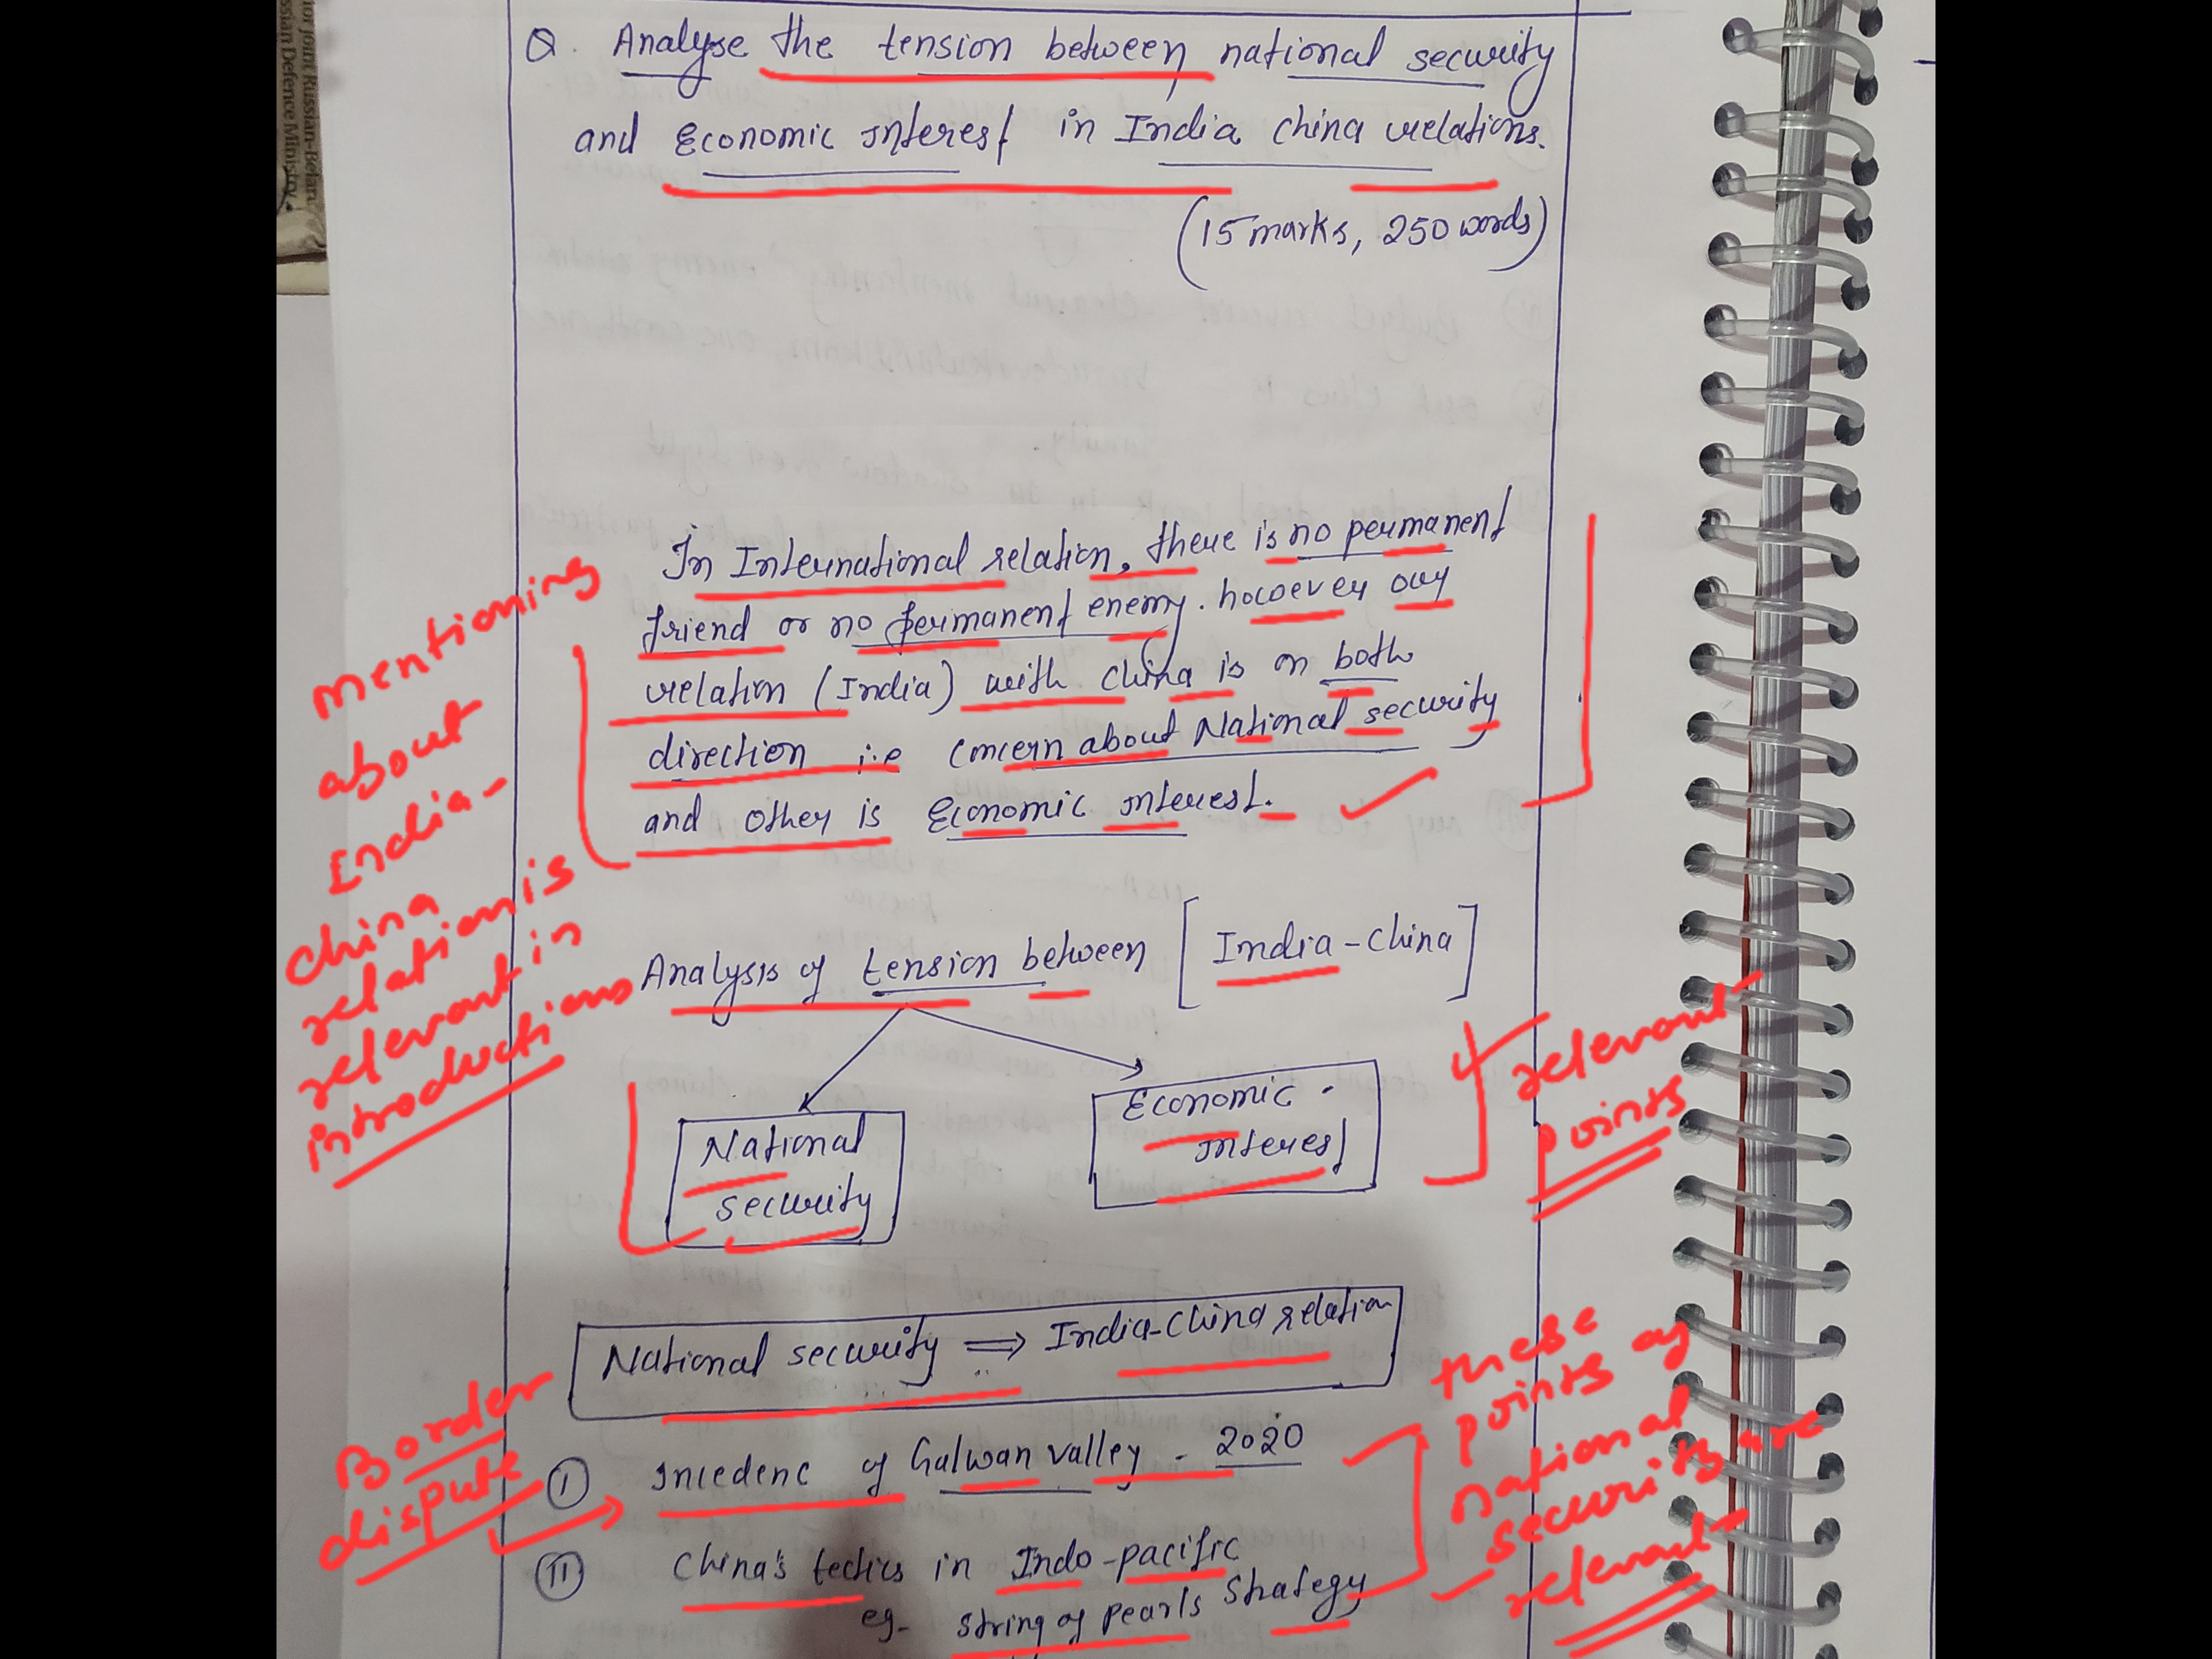 for joint Russian-Belaru
ssian Defence Ministry
Q. Analyse the tension between national security
and Economic Interest in India China relations.
(15 marks, 250 words)
In International relation, there is no permanent
friend or no permanent enemy. however our
relation (India) with China is on both
direction i.e concern about National security
and other is Economic Interest.
mentioning
about
India-
China
relation is
relevant in
introductions
Analysis of tension between [India-China]
National
security
Economic
Interest
relevant
points
National security ⇒ India-China relation
Border
dispute
I Incedenc of Galwan valley - 2020
II China's tectics in Indo-pacific
eg- string of pearls Strategy
these
points of
national
security are
relevant